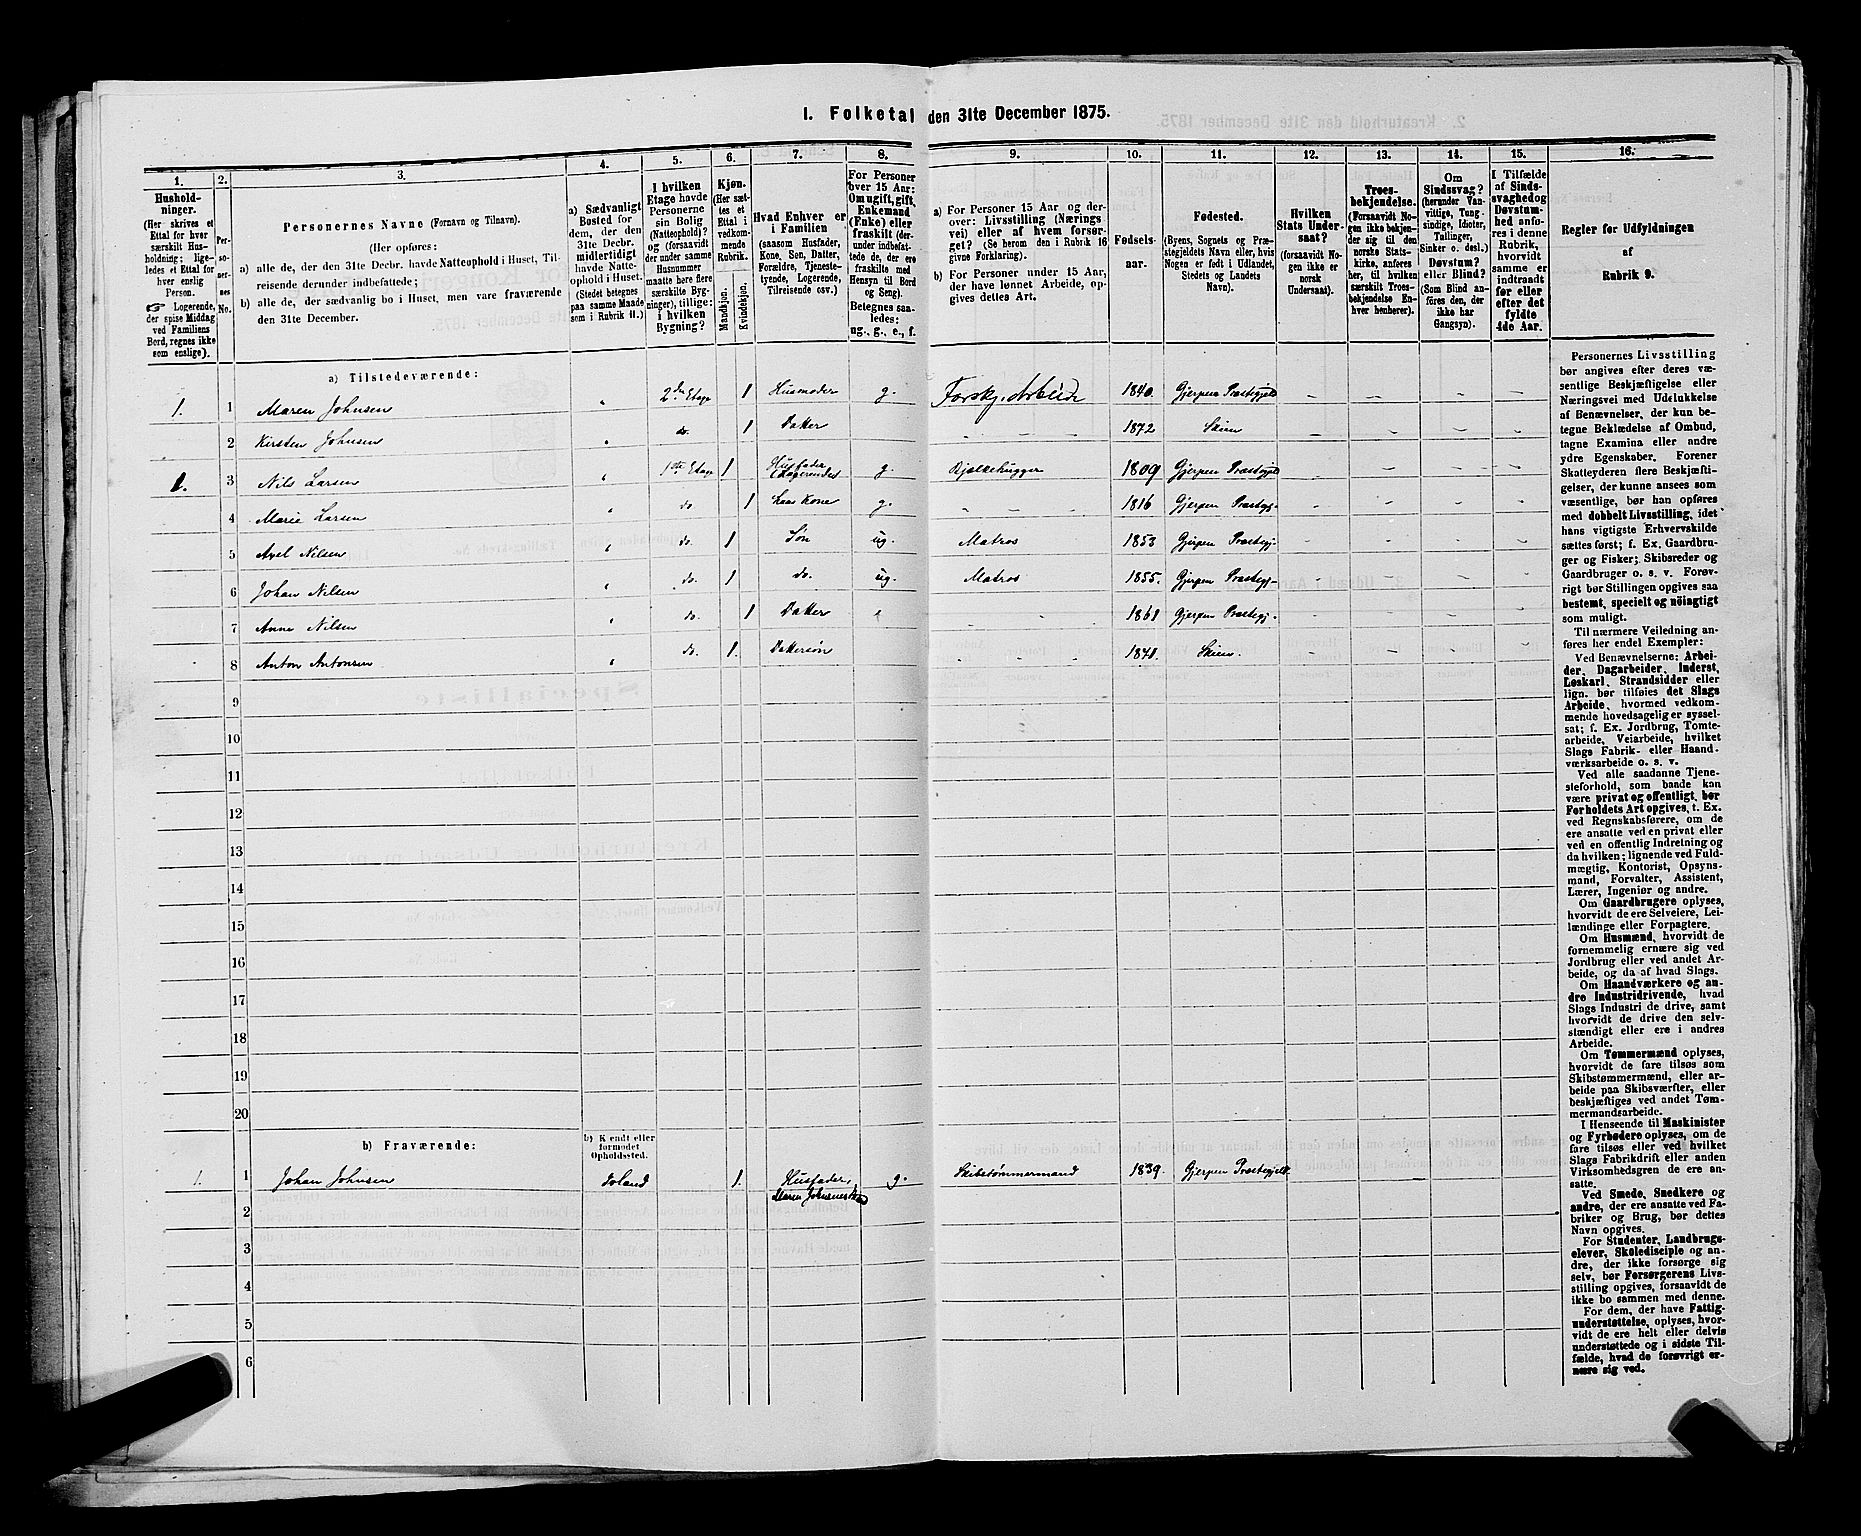 I. Folketal den 31te December 1875.
1. 2. 3. 4. 5. 6. 7. 8. 9. 10. 11. 12. 13. 14. 15. 16.
Hushold-
ninger.
(Her skrives et
Ettal for hver
særskilt Hus-
holdning; lige-
ledes et Ettal for
hver enslig
Person.
☞ Logerende,
der spise Middag
ved Familiens
Bord, regnes ikke
som enslige).
Per-
soner-
nes
No.
Personernes Navne (Fornavn og Tilnavn).
(Her opføres:
a) alle de, der den 31te Decbr. havde Natteophold i Huset, Til-
reisende derunder indbefattede;
b) alle de, der sædvanlig bo i Huset, men vare fraværende
den 31te December.
a) Sædvanligt
Bosted for
dem, der den
31te Decbr.
midlertidigt
havde Natte-
ophold i Huset.
(Stedet betegnes
paa samme Maade
som i Rubrik 11.)
I hvilken
Etage havde
Personerne
sin Bolig
(Natteophold)?
og (forsaavidt
der under samme
Husnummer
maatte høre flere
særskilte Byg-
ninger), tillige:
i hvilken
Bygning?
Kjøn.
(Her sæt-
tes et
Ettal i
vedkom-
mende
Rubrik.
Mandkjøn.
Kvindekjøn.
Hvad Enhver er
i Familien
(saasom Husfader,
Kone, Søn, Datter,
Forældre, Tjeneste-
tyende, Logerende,
Tilreisende osv.)
For Personer
over 15 Aar:
Om ugift, gift,
Enkemand
(Enke) eller
fraskilt (der-
under indbefat-
tede de, der ere
fraskilte med
Hensyn til Bord
og Seng).
Betegnes saa-
ledes:
ug., g., e., f.
a) For Personer 15 Aar og der-
over: Livsstilling (Nærings-
vei) eller af hvem forsør-
get? (Se herom den i Rubrik 16
givne Forklaring).
b) For Personer under 15 Aar,
der have lønnet Arbeide, op-
gives dettes Art.
Fødsels-
aar.
Fødested.
(Byens, Sognets og Præ-
stegjeldets Navn eller, hvis
Nogen er født i Udlandet,
Stedets og Landets
Navn).
Hvilken
Stats Under-
saat?
(forsaavidt No-
gen ikke er
norsk
Undersaat).
Troes-
bekjendelse.
(Forsaavidt No-
gen ikke bekjen-
der sig til den
norske Stats-
kirke, anføres
her, til hvilken
særskilt Troes-
bekjendelse En-
hver henhører).
Om
Sindssvag?
(herunder Van-
vittige, Tung-
sindige, Idioter,
Tullinger,
Sinker o. desl.)
Døvstum?
eller Blind?
(Som Blind an-
føres den, der
ikke har
Gangsyn).
I Tilfælde
af Sinds-
svaghed og
Døvstum-
hed anfø-
res i denne
Rubrik,
hvorvidt
samme er
indtraadt
før eller
efter det
fyldte
4de Aar.
Regler for Udfyldningen
af
Rubrik 9.
a) Tilstedeværende:
1. 1 Maren Johnsen " 2den Etage 1 Husmoder g. Forskj. Arbeide 1840. Gjerpen Præstegjeld
2 Kirsten Johnsen " do. 1 Datter 1872 Skien
1. 3 Nils Larsen " 1ste Etage 1 Husfader g. Bjelkehugger 1809 Gjerpen Præstegjeld
4 Marie Larsen " do 1 Kone g. 1816 Gjerpen Præstegj.
5 Axel Nilsen " do. 1 Søn ug. Matros 1853 Gjerpen Præstegj.
6 Johan Nilsen " do. 1 do. ug. Matros 1855. Gjerpen Præstegj.
7 Anne Nilsen " do. 1 Datter 1861 Gjerpen Præstegj.
8 Anton Antonsen " do. 1. Dattersøn Skien.
9
10
11
12
13
14
15
16
17
18
19
20
b) Fraværende:
b) Kjendt eller
formodet
Opholdssted.
1. 1 Johan Johnsen 1. Husfader, g. Skibstømmermand 1839. Gjerpen Præstegjeld.
Maren Johnsens
2
3
4
5
6
Personernes Livsstilling
bør angives efter deres væ-
sentlige Beskjæftigelse eller
Næringsvei med Udelukkelse
af Benævnelser, der kun be-
tegne Beklædelse af Ombud,
tagne Examina eller andre
ydre Egenskaber. Forener
Skatteyderen flere Beskjæfti-
gelser, der kunne ansees som
væsentlige, bør han opføres
med dobbelt Livsstilling, idet
hans vigtigste Erhvervskilde
sættes først; f. Ex. Gaardbru-
ger og Fisker; Skibsreder og
Gaardbruger o. s. v. Forøv-
rigt bør Stillingen opgives saa
bestemt, specielt og nøiagtigt
som muligt.
Til nærmere Veiledning an-
føres her endel Exempler:
Ved Benævnelserne: Arbei-
der, Dagarbeider, Inderst,
Løskarl, Strandsidder eller
lign. bør tilføies det Slags
Arbeide, hvormed vedkom-
mende hovedsagelig er syssel-
sat; f. Ex. Jordbrug, Tomte-
arbeide, Veiarbeide, hvilket
Slags Fabrik- eller Haand-
værksarbeide o. s. v.
Ved alle saadanne Tjene-
steforhold, som baade kan
være privat og offentligt, bør
Forholdets Art opgives, t. Ex.
ved Regnskabsførere, om de
ere ansatte ved en privat eller
ved en offentlig Indretning og
da hvilken; lignende ved Fuld-
mægtig, Kontorist, Opsyns-
mand, Forvalter, Assistent,
Lærer, Ingeniør og andre.
Om Gaardbrugere oplyses,
hvorvidt de ere Selveiere, Lei-
lændinge eller Forpagtere.
Om Husmænd, hvorvidt de
fornemmelig ernære sig ved
Jordbrug eller ved andet Ar-
beide, og da af hvad Slags.
Om Haandværkere og an-
dre Industridrivende, hvad
Slags Industri de drive, samt
hvorvidt de drive den selv-
stændigt eller ere i andres
Arbeide.
Om Tømmermænd oplyses,
hvorvidt de fare tilsøs som
Skibstømmermænd, eller ar-
beide paa Skibsværfter, eller
beskjæftiges ved andet Tøm-
mermandsarbeide.
I Henseende til Maskinister
og Fyrbødere oplyses, om de
fare tilsøs eller ved hvilket
Slags Fabrikdrift eller anden
Virksomhedsgren de ere an-
satte.
Ved Smede, Snedkere og
andre, der ere ansatte ved Fa-
briker og Brug, bør dettes
Navn opgives.
For Studenter, Landbrugs-
elever, Skoledisciple og an-
dre, der ikke forsørge sig
selv, bør Forsørgerens Livs-
stilling opgives, forsaavidt de
ikke bo sammen med denne.
For dem, der have Fattig-
understøttelse, oplyses, hvor-
vidt de ere helt eller delvis
understøttede og i sidste Til-
fælde, hvad de forøvrigt er-
nære sig ved.